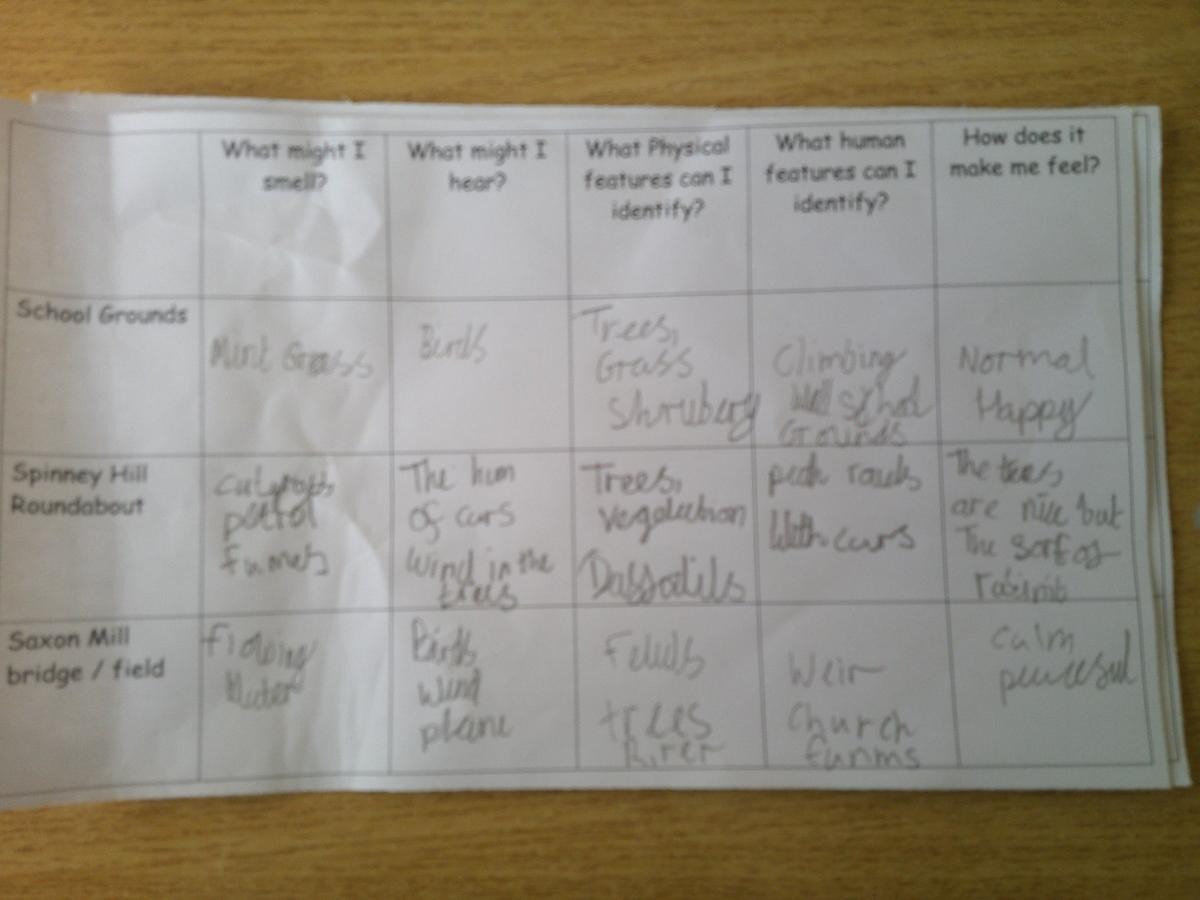 What might I smell?
What might I hear?
What Physical features can I identify?
What human features can I identify?
How does it make me feel?
School Grounds
Mint Grass
Birds
Trees,
Grass
Shrubery
Climbing
Wall School
Grounds
Normal
Happy
Spinney Hill
Roundabout
petrol
fumes
The hum
of cars
wind in the
trees
Trees,
Daffodils
roads
With cars
The trees
are nice but
The
Saxon Mill
bridge / field
Birds
wind
plane
trees
River
Weir
Church
calm